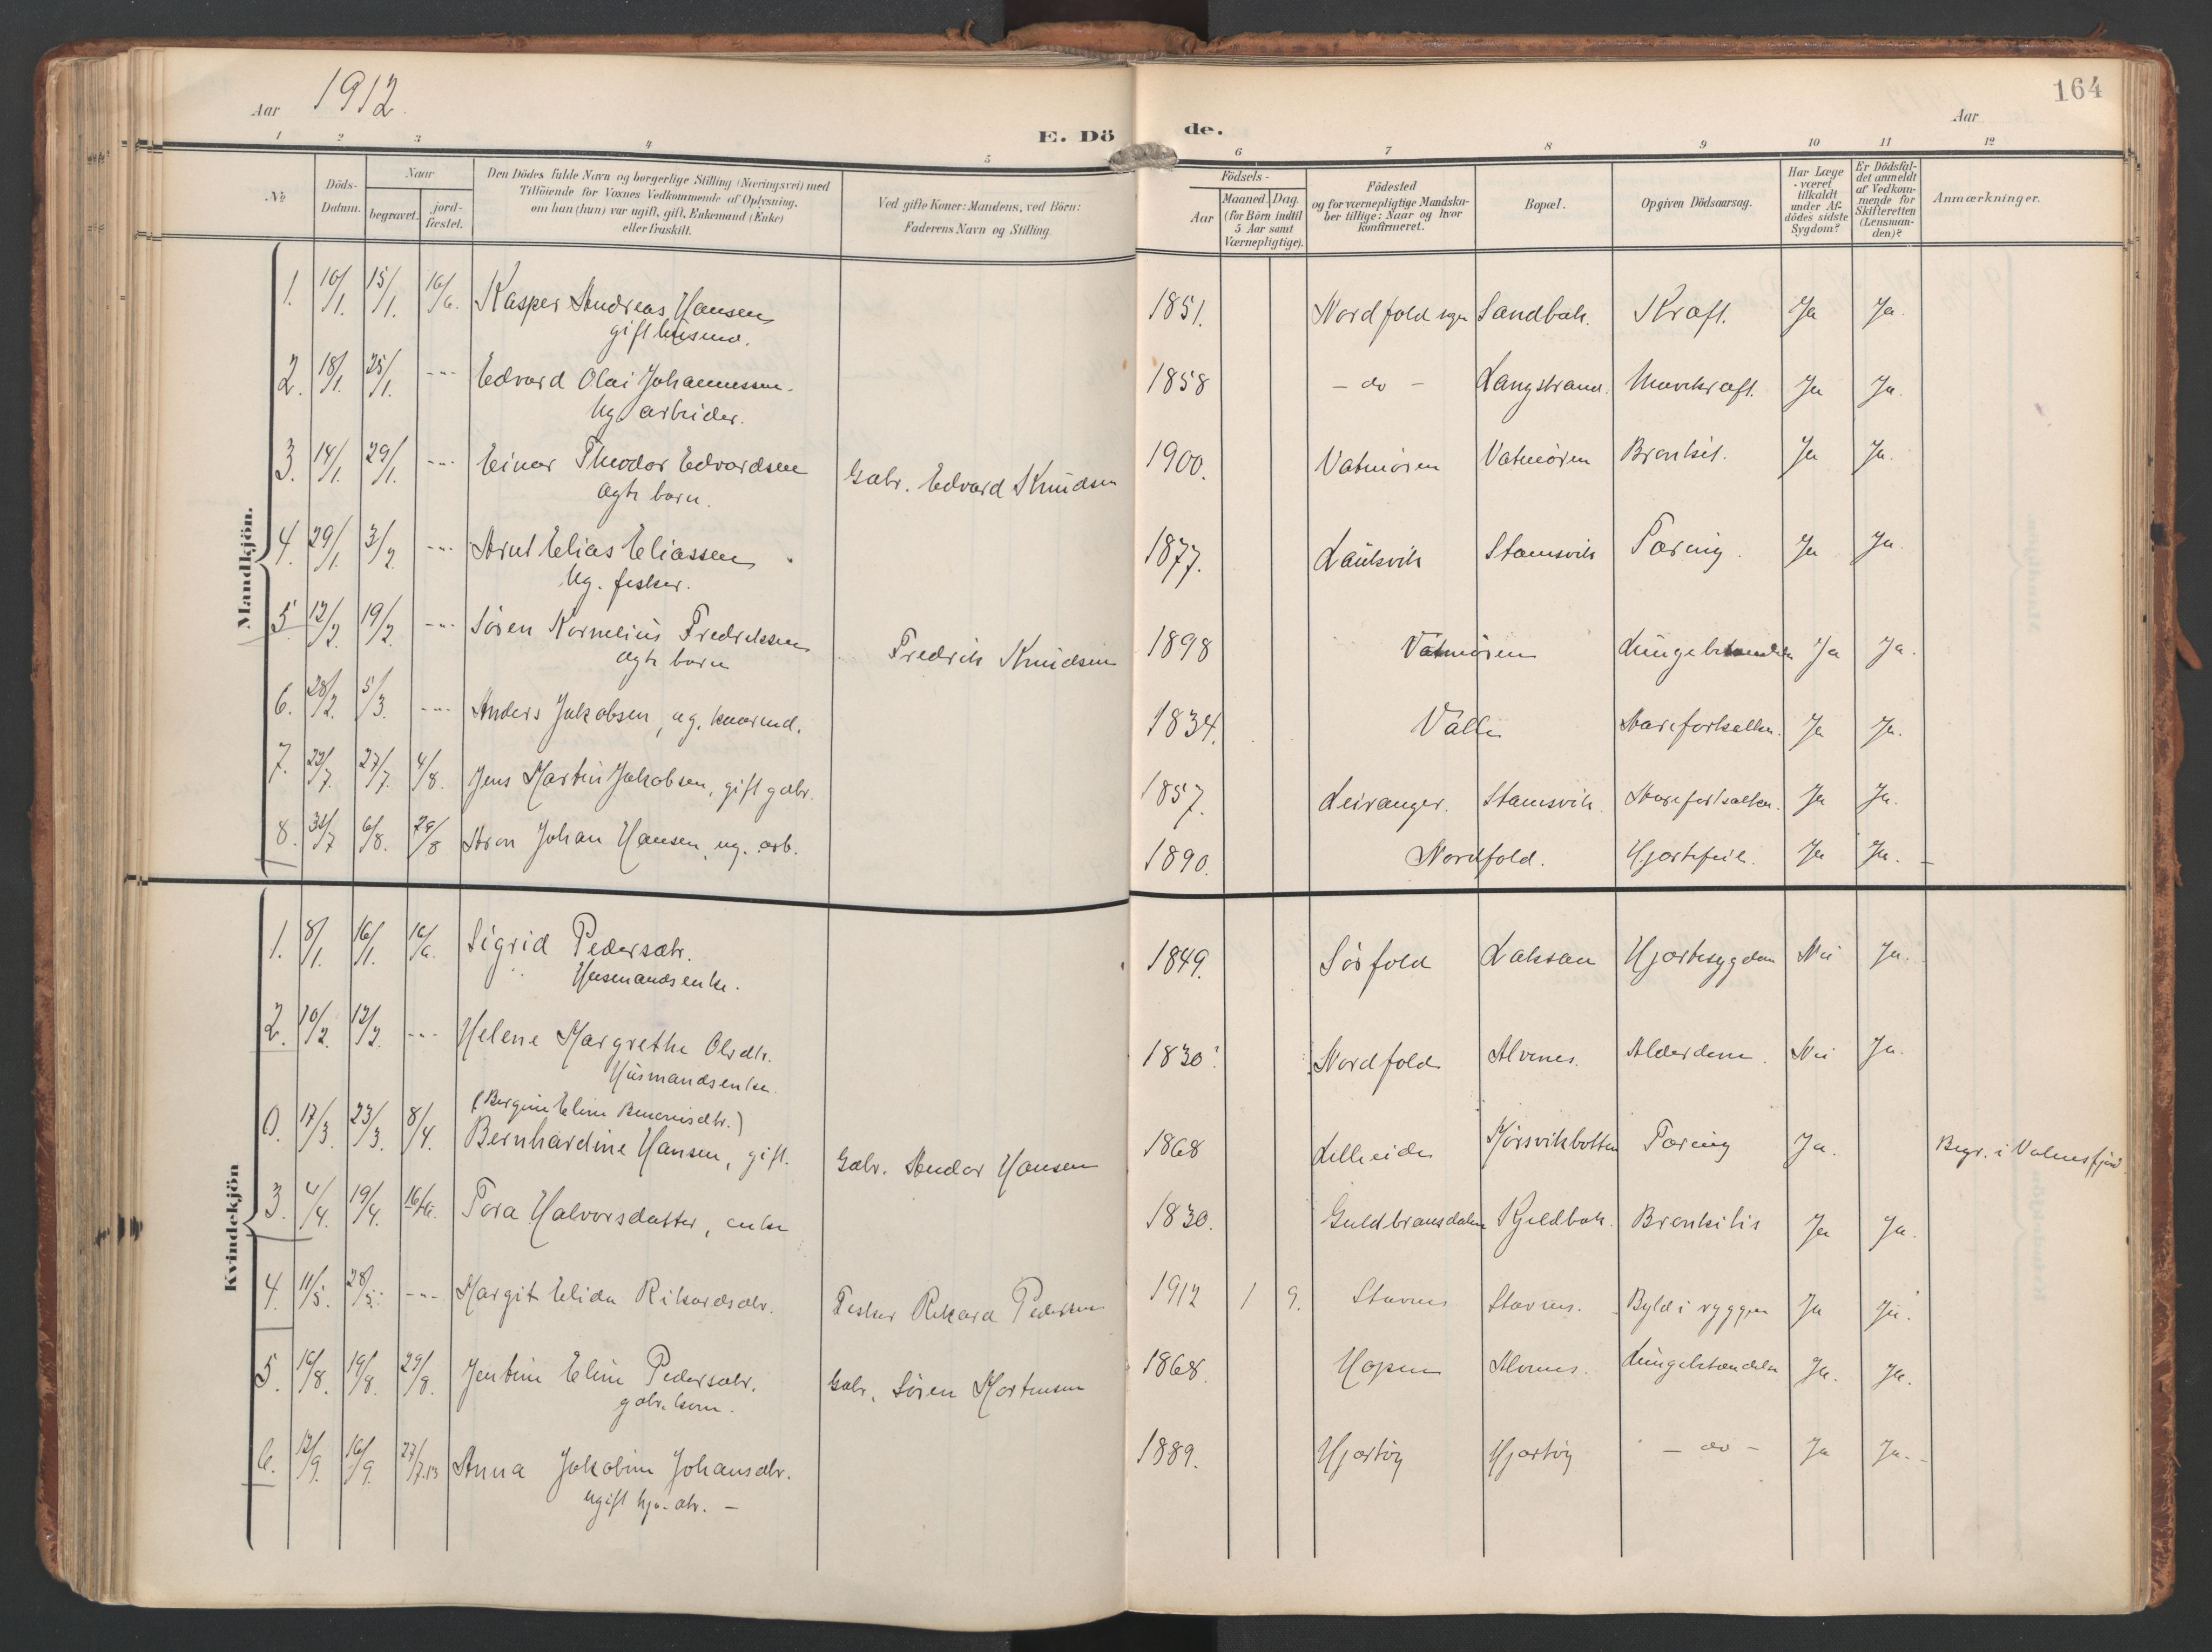 Aar 1912.
164
Aar
1 2 3 4 5 6 7 8 9 10 11 12
E. Dö de.
No
Döds-Datum.
Naar
begravet.
jord-fæstet.
Den Dödes fulde Navn og borgerlige Stilling (Næringsvei) med
Tilföiende for Voxnes Vedkommende af Oplysning,
om han (hun) var ugift, gift, Enkemand (Enke)
eller fraskilt.
Ved gifte Koner: Mandens, ved Börn:
Faderens Navn og Stilling.
Födsels-
Aar
Maaned. Dag.
(for Börn indtil
5 Aar samt
Værnepligtige).
Födested
og for værnepligtige Mandska-
ber tillige: Naar og hvor
konfirmeret.
Bopæl.
Opgiven Dödsaarsag.
Har Læge
været
tilkaldt
under Af-
dödes sidste
Sygdom?
Er Dödsfal-
det anmeldt
af Vedkom-
mende for
Skifteretten
(Lensman-
den)?
Anmærkninger.
Mandkjön.
1. 10/1. 15/1. 16/6. Kasper Andreas Hansen 1851. Nordfold sogn Sandbak. Kræft. Ja Ja.
gift husmd.
2. 18/1. 25/1. --- Edvard Olai Johannessen. 1858 - do - Langstrand. Mavekræft. Ja Ja.
Ug arbeider.
3. 14/1. 29/1. --- Einar Theodor Edvardsen Gabr. Edvard Knudsen 1900. Vatmøren Vatmøren Bronkit. Ja Ja.
ægte barn.
4. 29/1. 3/2. --- Arnt Elias Eliassen 1877. Lautsvik Stamsvik Tæring. Ja Ja.
Ug. fisker.
5. 12/2. 19/2. --- Søren Kornelius Fredriksen Fredrik Knudsen 1898 Vatmøren Ja Ja.
ægte barn
6. 28/2. 5/3. --- Anders Jakobsen, ug. 1834. Valle Aareforkalkn. Ja Ja.
7. 23/7. 27/7. 4/8. Jens Martin Jakobsen, gift gabr. 1857. Leiranger. Stamsvik. Aareforkalkn. Ja Ja.
8. 31/7 6/8. 29/8 Aron Johan Hansen, ug. arb. 1890. Nordfold. Hjertefeil. Ja Ja. -
Kvindekjön
1. 8/1. 16/1. 16/6. Sigrid Pedersdtr. 1849. Sørfold Laksaa Hjertesygdom Nei Ja.
Husmandsenke.
2. 10/2. 12/2. --- Helene Margrethe Olsdtr. 1830? Nordfold Alvenes. Alderdom. Nei Ja.
Husmandsenke.
(Bergine Eline Benonisdtr.)
0. 17/3. 23/3. 8/4. Bernhardine Hansen, gift. Gabr. Andor Hansen 1868 Lilleeide Kjørsvikbotten Tæring Ja. Begr. i Valnesfjord
3. 4/4. 19/4. 16/6. Tora Halvorsdatter, enke 1830. Guldbransdalen Kjeldbak. Bronkitis Ja Ja.
4. 11/5. 28/5. --- Margit Elida Rikardsdtr. Fisker Rikard Pedersen 1912 1 9. Stavnes Stavnes. Byld i ryggen Ja Ja.
5. 16/8. 19/8. 29/8. Jentine Eline Pedersdtr. Gabr. Søren Mortensen 1868. Hopen Alvenes. Ja. Ja.
gabr. kone.
6. 12/9. 16/9. 27/7.13 Anna Jakobine Johansdtr. 1889. Hjartøy Hjartøy - do - Ja Ja. -
ugift dtr. -